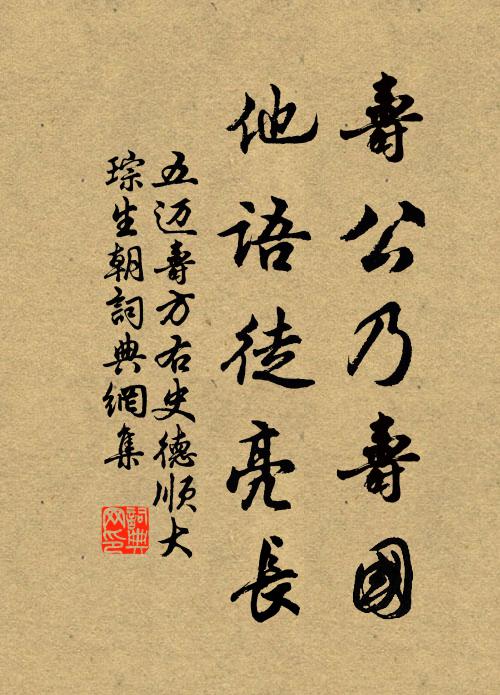 壽公乃壽國
他語徒亮長
五迈壽方右史德順大
琮生朝詞典網集
詞典
网印